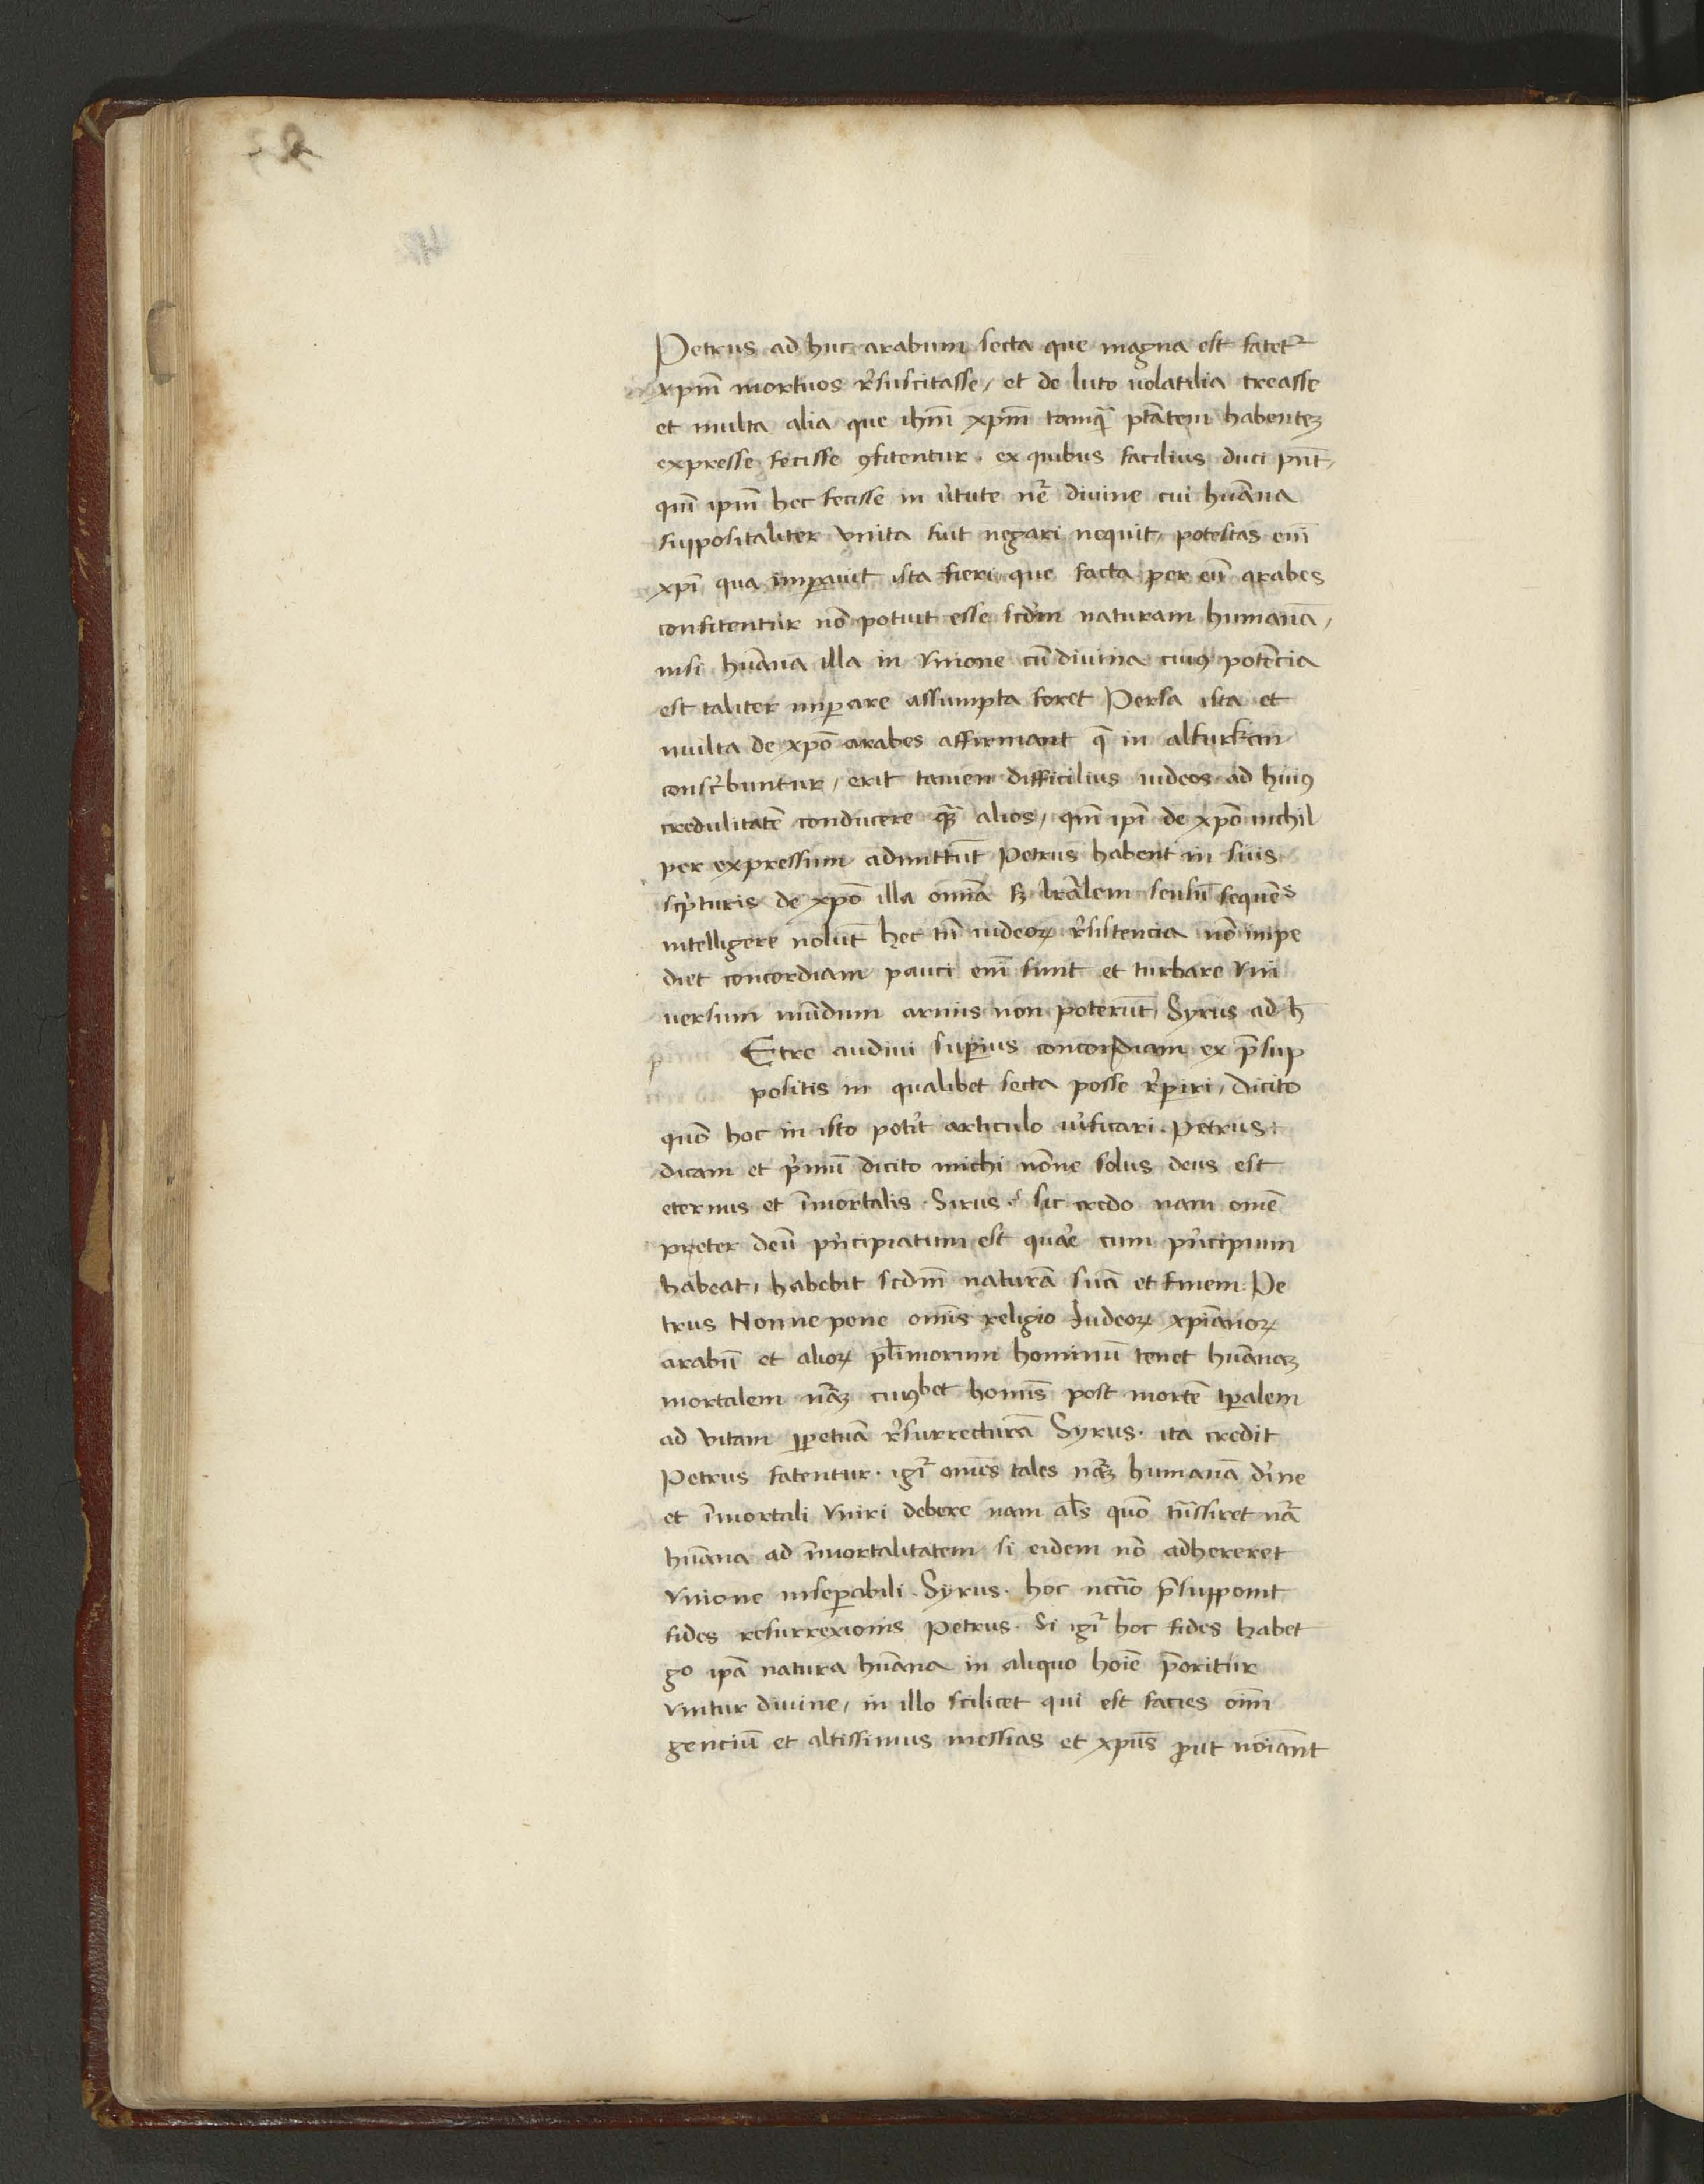 Petrus ad huc arabum secta que magna est fatet᷑
xpm̄ mortuos r̄suscitasse, et de luto uolatilia creasse
et multa alia que ihm̄ xpm̄ tamq̄ ptātem habentez
expresse fecisse ꝯfitentur. ex quibus facilius duci pn̄t,
qm̄ ipm̄ hec fecisse in v̄tute nr̄e divine cui huāna
suppositaliter vnita fuit negari nequit, potestas em̄
xpī qua imꝑauit ista fieri que facta per eū arabes
confitentur nō potuit esse scdm̄ naturam humanā,
nisi huāna illa in vnione cū divina cuiꝰ potēcia
est taliter imꝑare assumpta foret Persa ista et
multa de xpō arabes affirmant q̄ in alkurkan
conscᵢbuntur, erit tamen difficilius iudeos ad huiꝰ
credulitatē conducere quā alios, qm̄ ipī de xpō nichil
per expressum admittūt Petrus habent in suis
scpͥturis de xpō illa omīa sꝫ lrālem sensū sequēs
intelligere nolūt hec tn̄ iudeoꝝ r̄sistencia nō impe
diet concordiam pauci em̄ sunt et turbare vni
versum mūdum armis non poterūt, Syrus ad h̄
p Etre audiui suꝑius concordiam ex p̄sup
positis in qualibet secta posse r̄ꝑiri, dicito
quō hoc in isto potit̄ articulo v̄ificari. Petrus:
dicam et pͥmū dicito michi nōne solus deus est
eternus et īmortalis. Sirus. sic credo nam omē
preter deū pͥncipiatum est quar̄e cum pͥncipium
habeat, habebit scdm̄ naturā suā et finem. Pe
trus Nonne pene omīs religio Iudeoꝝ xpianoꝝ
arabū et alioꝝ pl̄imorum hominū tenet huānaꝫ
mortalem nāꝫ cuiꝰbet homīs post mortē tꝑalem
ad vitam ꝑpetuā r̄surrecturā Syrus. ita credit
Petrus fatentur. igᷣ omēs tales nāꝫ humanā dīne
et īmortali vniri debere nam al̄s quō trn̄ssiret nā
huāna ad īmortalitatem si eidem nō adhereret
vnione inseꝑabili. Syrus. hoc nccīo p̄supponit
fides resurrexionis Petrus. Si igᷣ hoc fides habet
gͦ ipā natura huāna in aliquo hoīe p̄oritur
vnitur divine, in illo scilicet qui est facies oīm
genciū et altissimus messias et xpūs ꝓut noīant